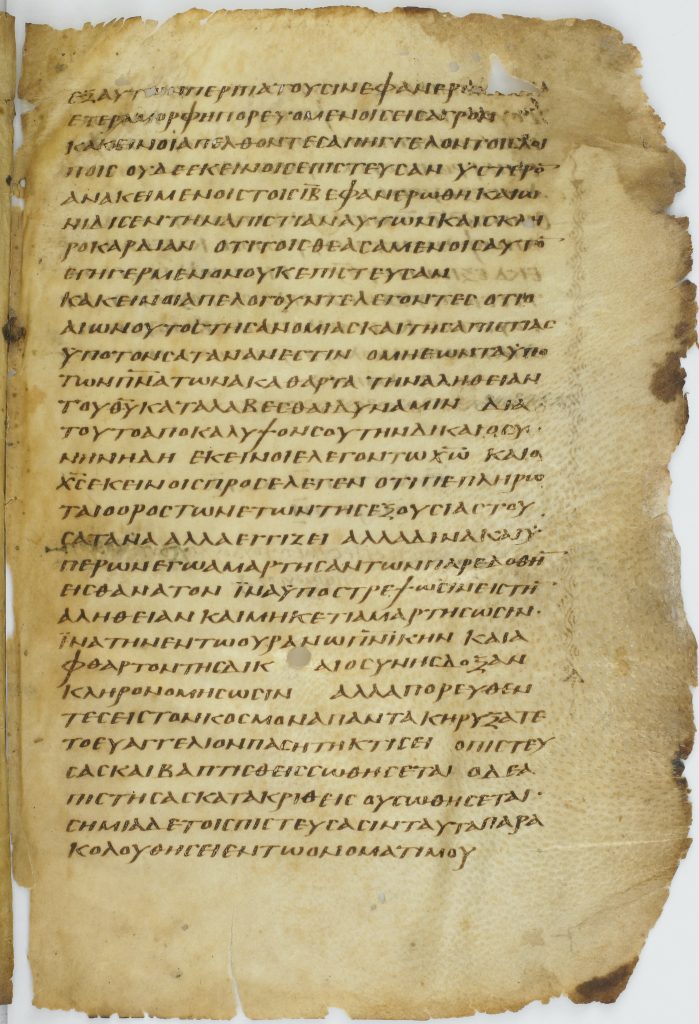 ΕΞΑΥΤΩΝΠΕΡΙΠΑΤΟΥϹΙΝΕΦΑΝΕΡ
ΕΤΕΡΑΜΟΡΦΗΠΟΡΕΥΟΜΕΝΟΙϹΕΙϹΑΓΡΟΝ
ΚΑΚΕΙΝΟΙΑΠΕΛΘΟΝΤΕϹΑΠΗΓΓΕΛΟΝΤΟΙϹΛΟΙ
ΠΟΙϹ ΟΥΔΕΕΚΕΙΝΟΙϹΕΠΙϹΤΕΥϹΑΝ ΥϹΤΕΡΟ̅
ΑΝΑΚΕΙΜΕΝΟΙϹΤΟΙϹΙ̅Α̅ΕΦΑΝΕΡΩΘΗΚΑΙΩ
ΝΙΔΙϹΕΝΤΗΝΑΠΙϹΤΙΑΝΑΥΤΩΝΚΑΙϹΚΛΗ
ΡΟΚΑΡΔΙΑΝ ΟΤΙΤΟΙϹΘΕΑϹΑΜΕΝΟΙϹΑΥΤΟ̅
ΕΓΗΓΕΡΜΕΝΟΝΟΥΚΕΠΙϹΤΕΥϹΑΝ
ΚΑΚΕΙΝΟΙΑΠΕΛΟΓΟΥΝΤΕΛΕΓΟΝΤΕϹ ΟΤΙΟ
ΑΙΩΝΟΥΤΟϹΤΗϹΑΝΟΜΙΑϹΚΑΙΤΗϹΑΠΙϹΤΙΑϹ
ΫΠΟΤΟΝϹΑΤΑΝΑΝΕϹΤΙΝ ΟΜΗΕΩΝΤΑΫΠΟ
ΤΩΝΠ̅Ν̅Α̅ΤΩΝΑΚΑΘΑΡΤΑ ΤΗΝΑΛΗΘΕΙΑΝ
ΤΟΥΘ̅Υ̅ΚΑΤΑΛΑΒΕϹΘΑΙΔΥΝΑΜΙΝ ΔΙΑ
ΤΟΥΤΟΑΠΟΚΑΛΥΨΟΝϹΟΥΤΗΝΔΙΚΑΙΟϹΥ
ΝΗΝΗΔΗ ΕΚΕΙΝΟΙΕΛΕΓΟΝΤΩΧ̅Ω̅ ΚΑΙΟ
Χ̅Ϲ̅ΕΚΕΙΝΟΙϹΠΡΟϹΕΛΕΓΕΝ ΟΤΙΠΕΠΛΗΡΩ
ΤΑΙΟΟΡΟϹΤΩΝΕΤΩΝΤΗϹΕΞΟΥϹΙΑϹΤΟΥ
ϹΑΤΑΝΑ ΑΛΛΑΕΓΓΙΖΕΙ ΑΛΛΑΔΙΝΑΚΑΙΫ
ΠΕΡΩΝΕΓΩΑΜΑΡΤΗϹΑΝΤΩΝΠΑΡΕΔΟΘΗ̅
ΕΙϹΘΑΝΑΤΟΝ ΪΝΑΫΠΟϹΤΡΕΨΩϹΙΝΕΙϹΤΗ̅
ΑΛΗΘΕΙΑΝΚΑΙΜΗΚΕΤΙΑΜΑΡΤΗϹΩϹΙΝ·
ΪΝΑΤΗΝΕΝΤΩΟΥΡΑΝΩΠ̅Ν̅ΙΚΗΝ ΚΑΙΑ
ΦΘΑΡΤΟΝΤΗϹΔΙΚ ΑΙΟϹΥΝΗϹΔΟΞΑΝ
ΚΛΗΡΟΝΟΜΗϹΩϹΙΝ ΑΛΛΑΠΟΡΕΥΘΕΝ
ΤΕϹΕΙϹΤΟΝΚΟϹΜΟΝΑΠΑΝΤΑΚΗΡΥΞΑΤΕ
ΤΟΕΥΑΓΓΕΛΙΟΝΠΑϹΗΤΗΚΤΙϹΕΙ ΟΠΙϹΤΕΥ
ϹΑϹΚΑΙΒΑΠΤΙϹΘΕΙϹϹΩΘΗϹΕΤΑΙ ΟΔΕΑ
ΠΙϹΤΗϹΑϹΚΑΤΑΚΡΙΘΕΙϹ ΟΥϹΩΘΗϹΕΤΑΙ·
ϹΗΜΙΑΔΕΤΟΙϹΠΙϹΤΕΥϹΑϹΙΝΤΑΥΤΑΠΑΡΑ
ΚΟΛΟΥΘΗϹΕΙΕΝΤΩΟΝΟΜΑΤΙΜΟΥ